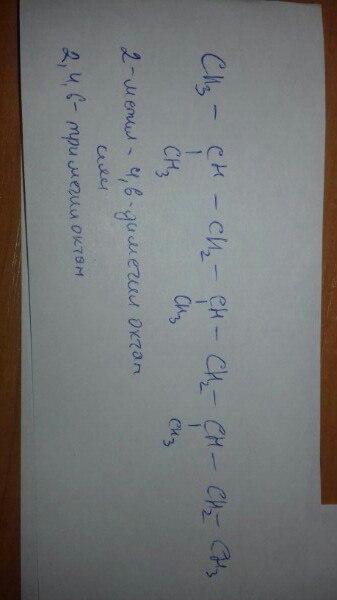 CH3 – CH – CH2 – CH – CH2 – CH – CH2 – CH3
CH3 CH3 CH3
2-метил-4,6-диметил октан
или
2,4,6-триметилоктан